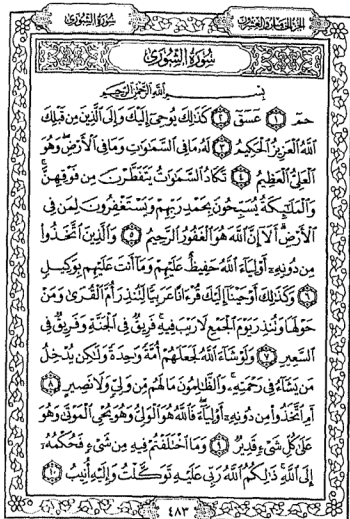 سُورَةُ الشُّورَىٰ
الجُزْءُ الخَامِسُ وَالعِشْرُونَ
سُورَةُ الشُّورَىٰ
بِسْمِ اللَّهِ الرَّحْمَٰنِ الرَّحِيمِ
حمٓ ١ عٓسٓقٓ ٢ كَذَٰلِكَ يُوحِيٓ إِلَيْكَ وَإِلَى الَّذِينَ مِن قَبْلِكَ
اللَّهُ الْعَزِيزُ الْحَكِيمُ ٣ لَهُ مَا فِي السَّمَٰوَٰتِ وَمَا فِي الْأَرْضِ ۖ وَهُوَ
الْعَلِيُّ الْعَظِيمُ ٤ تَكَادُ السَّمَٰوَٰتُ يَتَفَطَّرْنَ مِن فَوْقِهِنَّ ۚ
وَالْمَلَٰٓئِكَةُ يُسَبِّحُونَ بِحَمْدِ رَبِّهِمْ وَيَسْتَغْفِرُونَ لِمَن فِي
الْأَرْضِ ۗ أَلَآ إِنَّ اللَّهَ هُوَ الْغَفُورُ الرَّحِيمُ ٥ وَالَّذِينَ اتَّخَذُوا
مِن دُونِهِۦٓ أَوْلِيَآءَ اللَّهُ حَفِيظٌ عَلَيْهِمْ وَمَآ أَنتَ عَلَيْهِم بِوَكِيلٍ
٦ وَكَذَٰلِكَ أَوْحَيْنَآ إِلَيْكَ قُرْءَانًا عَرَبِيًّا لِّتُنذِرَ أُمَّ الْقُرَىٰ وَمَنْ
حَوْلَهَا وَتُنذِرَ يَوْمَ الْجَمْعِ لَا رَيْبَ فِيهِ ۚ فَرِيقٌ فِي الْجَنَّةِ وَفَرِيقٌ فِي
السَّعِيرِ ٧ وَلَوْ شَآءَ اللَّهُ لَجَعَلَهُمْ أُمَّةً وَٰحِدَةً وَلَٰكِن يُدْخِلُ
مَن يَشَآءُ فِي رَحْمَتِهِۦ ۚ وَالظَّٰلِمُونَ مَا لَهُم مِّن وَلِيٍّ وَلَا نَصِيرٍ ٨
أَمِ اتَّخَذُوا مِن دُونِهِۦٓ أَوْلِيَآءَ ۖ فَاللَّهُ هُوَ الْوَلِيُّ وَهُوَ يُحْيِ الْمَوْتَىٰ وَهُوَ
عَلَىٰ كُلِّ شَيْءٍ قَدِيرٌ ٩ وَمَا اخْتَلَفْتُمْ فِيهِ مِن شَيْءٍ فَحُكْمُهُۥٓ
إِلَى اللَّهِ ۚ ذَٰلِكُمُ اللَّهُ رَبِّي عَلَيْهِ تَوَكَّلْتُ وَإِلَيْهِ أُنِيبُ ١٠
٤٨٣